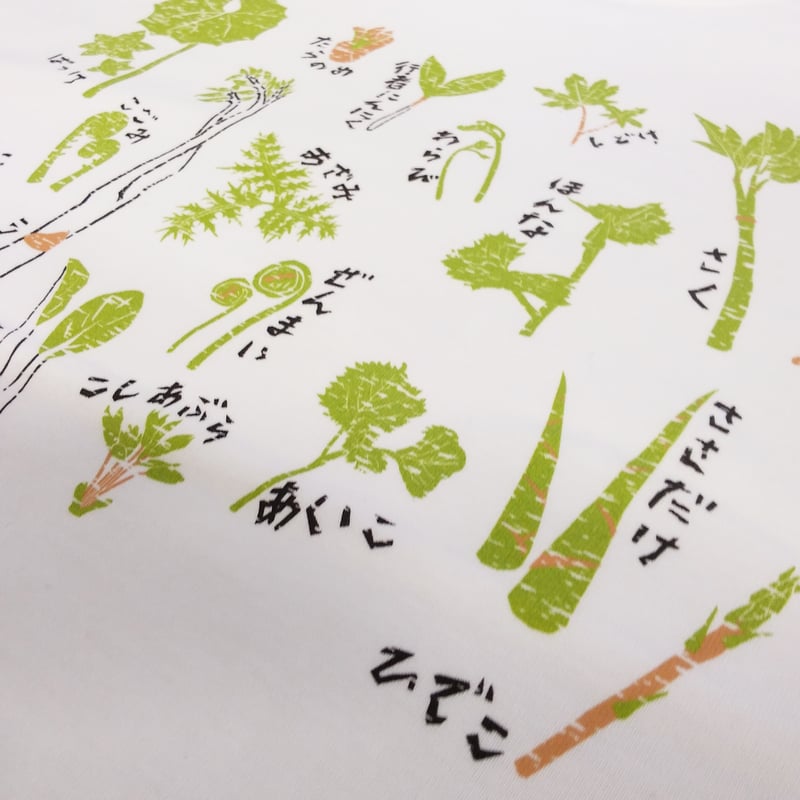 ばっけ
たらのめ
行者にんにく
しどけ
こごみ
わらび
あざみ
ほんな
さく
ぜんまい
こしあぶら
あいこ
ささだけ
ひでこ